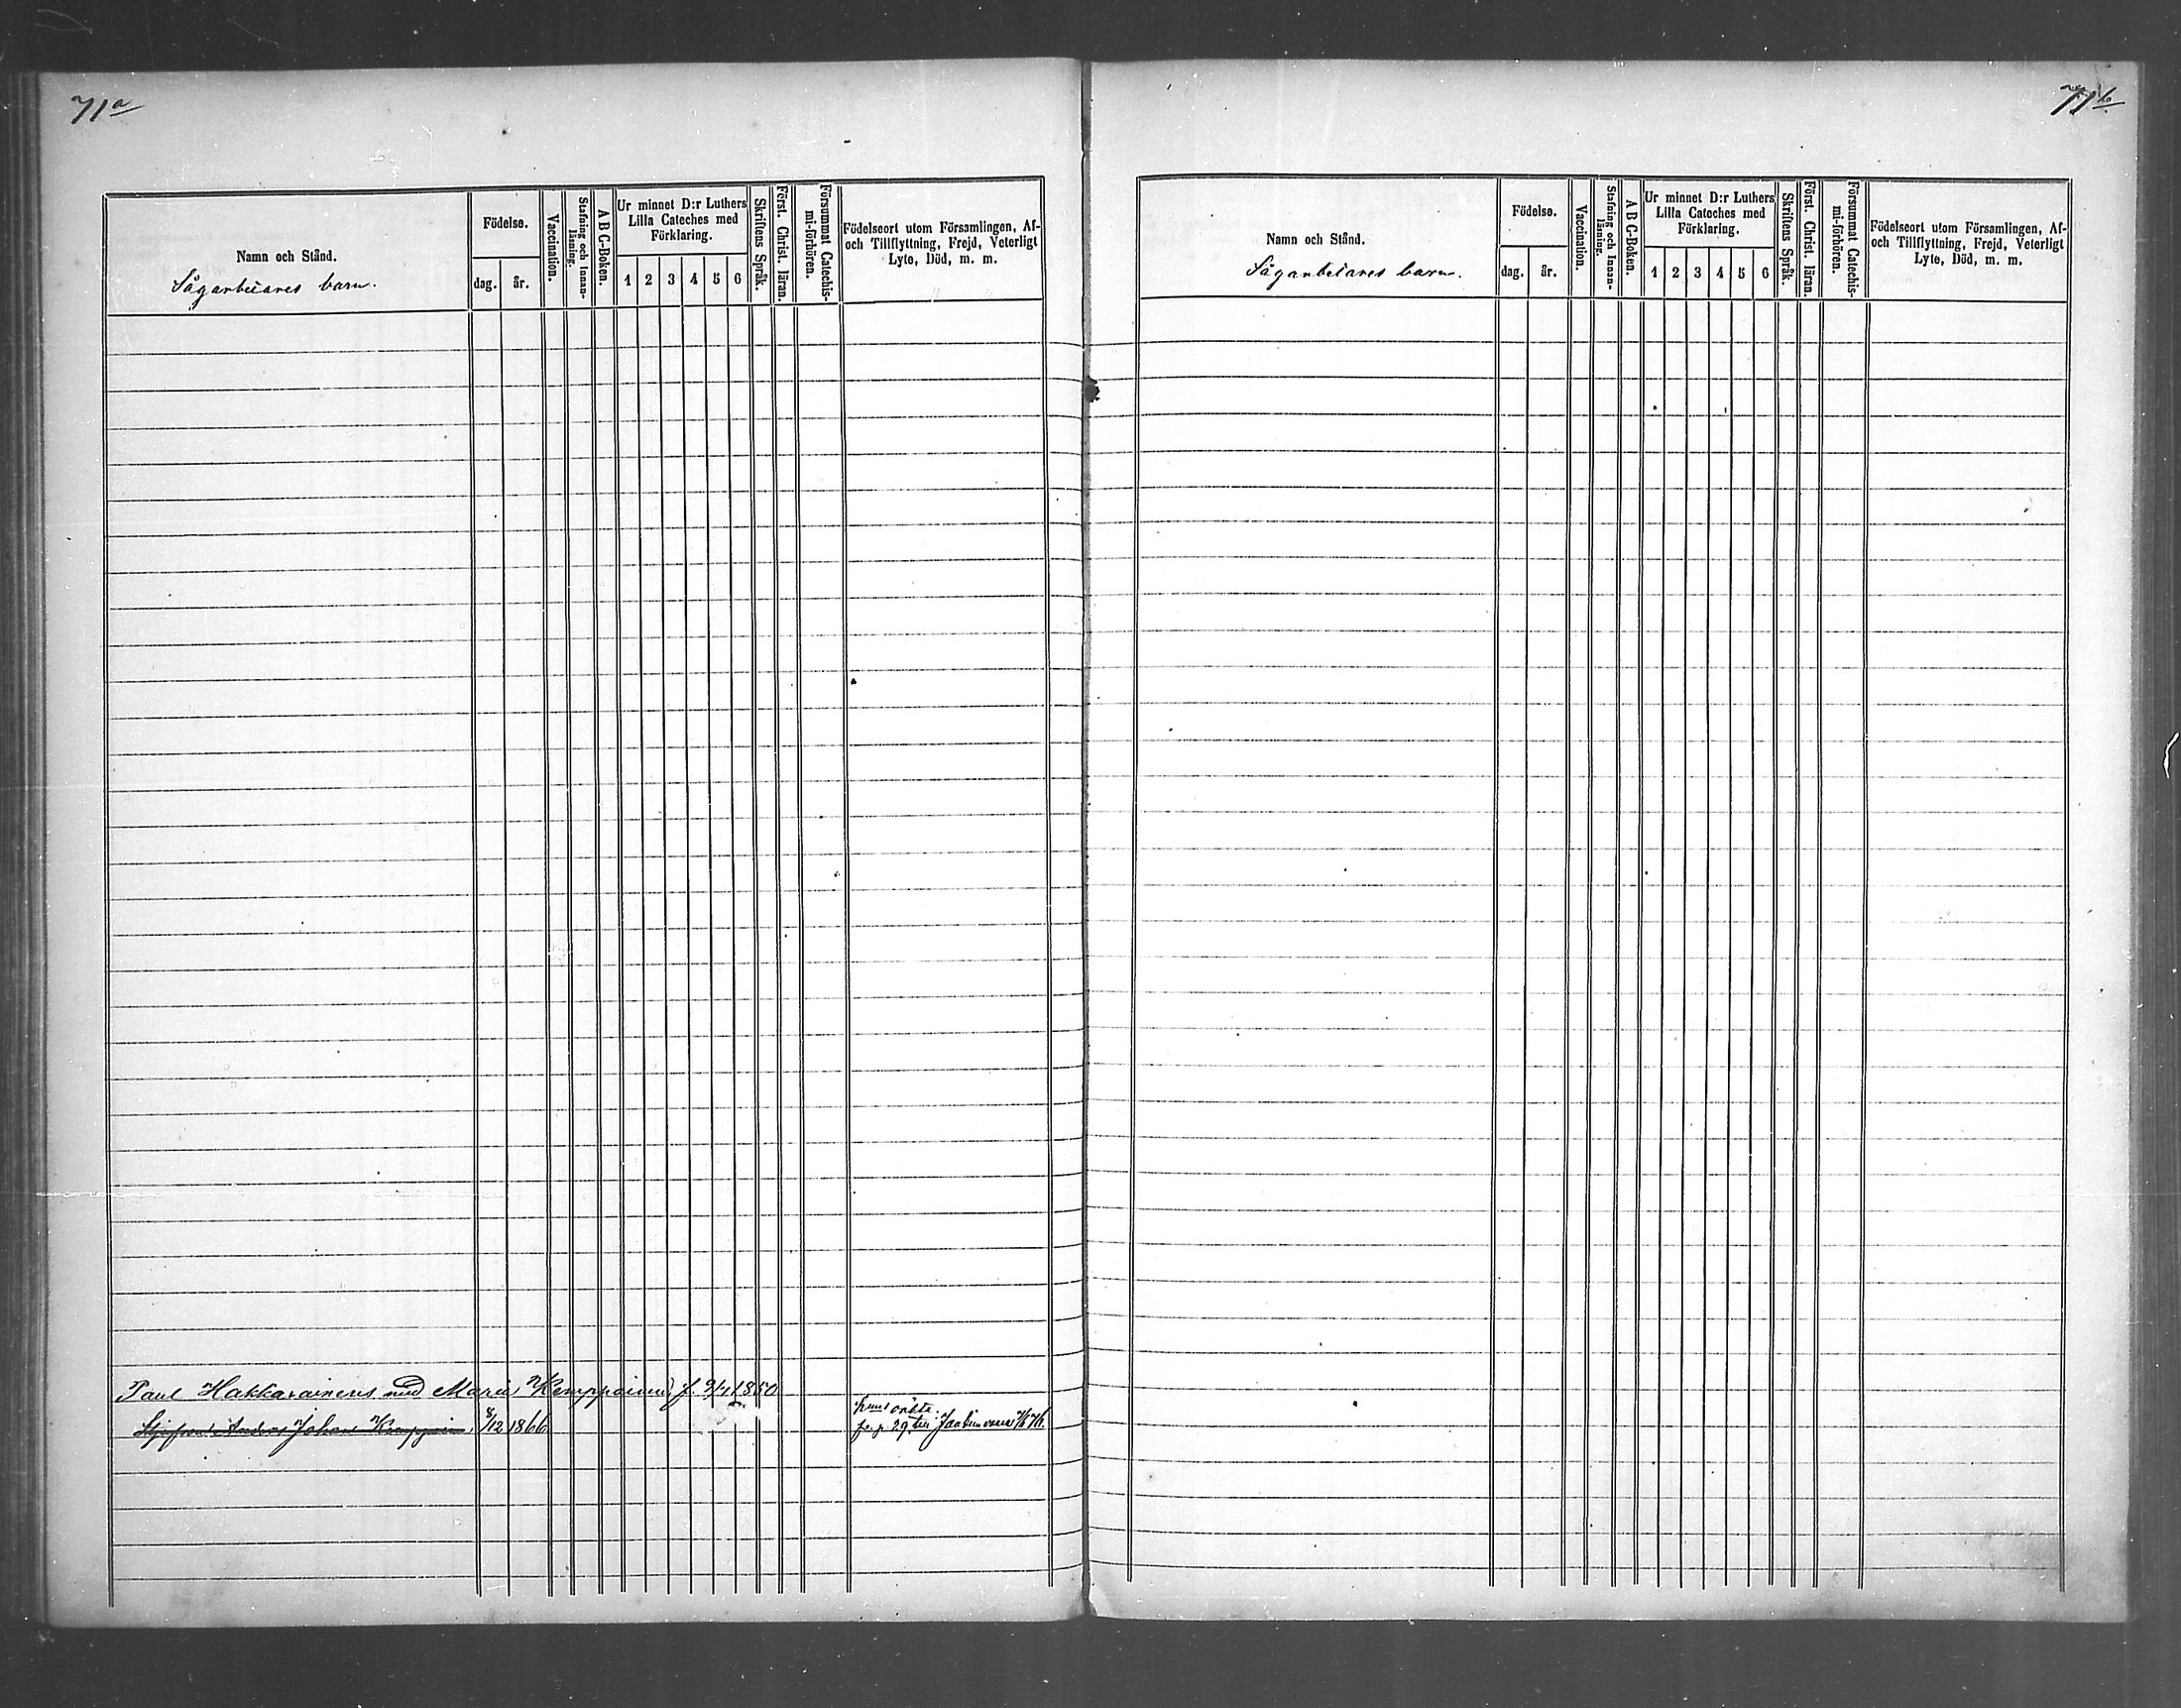 71a
Namn och Stånd.
Sågarbetares barn.
Födelse.
dag.
år.
Vaccination.
Stafning och Innanläsning.
A B C-Boken.
Ur minnet D:r Luthers
Lilla Cateches med
Förklaring.
1 2 3 4 5 6
Skriftens Språk.
Först. Christ. läran.
Försummat Catechismi-förhören.
Födelseort utom Församlingen, Af-
och Tillflyttning, Frejd, Veterligt
Lyte, Död, m. m.
Paul Hakkarainens med Maria Kemppainen f. 9/4 1850
Anders Johan 8/12 1866
71b
Namn och Stånd.
Sågarbetares barn.
Födelse.
dag.
år.
Vaccination.
Stafning och Innanläsning.
A B C-Boken.
Ur minnet D:r Luthers
Lilla Cateches med
Förklaring.
1 2 3 4 5 6
Skriftens Språk.
Först. Christ. läran.
Försummat Catechismi-förhören.
Födelseort utom Församlingen, Af-
och Tillflyttning, Frejd, Veterligt
Lyte, Död, m. m.